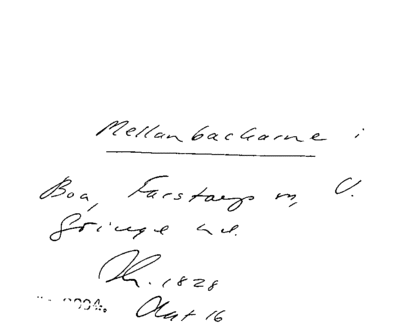 Mellanbackarne i
Boa, Farstorps sn, V.
Göinge hd.
1828
Akt 16